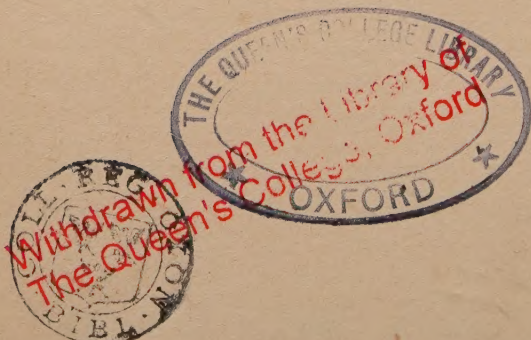 THE QUEEN'S COLLEGE LIBRARY
OXFORD
Withdrawn from the Library of
The Queen's College, Oxford
COLL. REG
OXON
BIBL